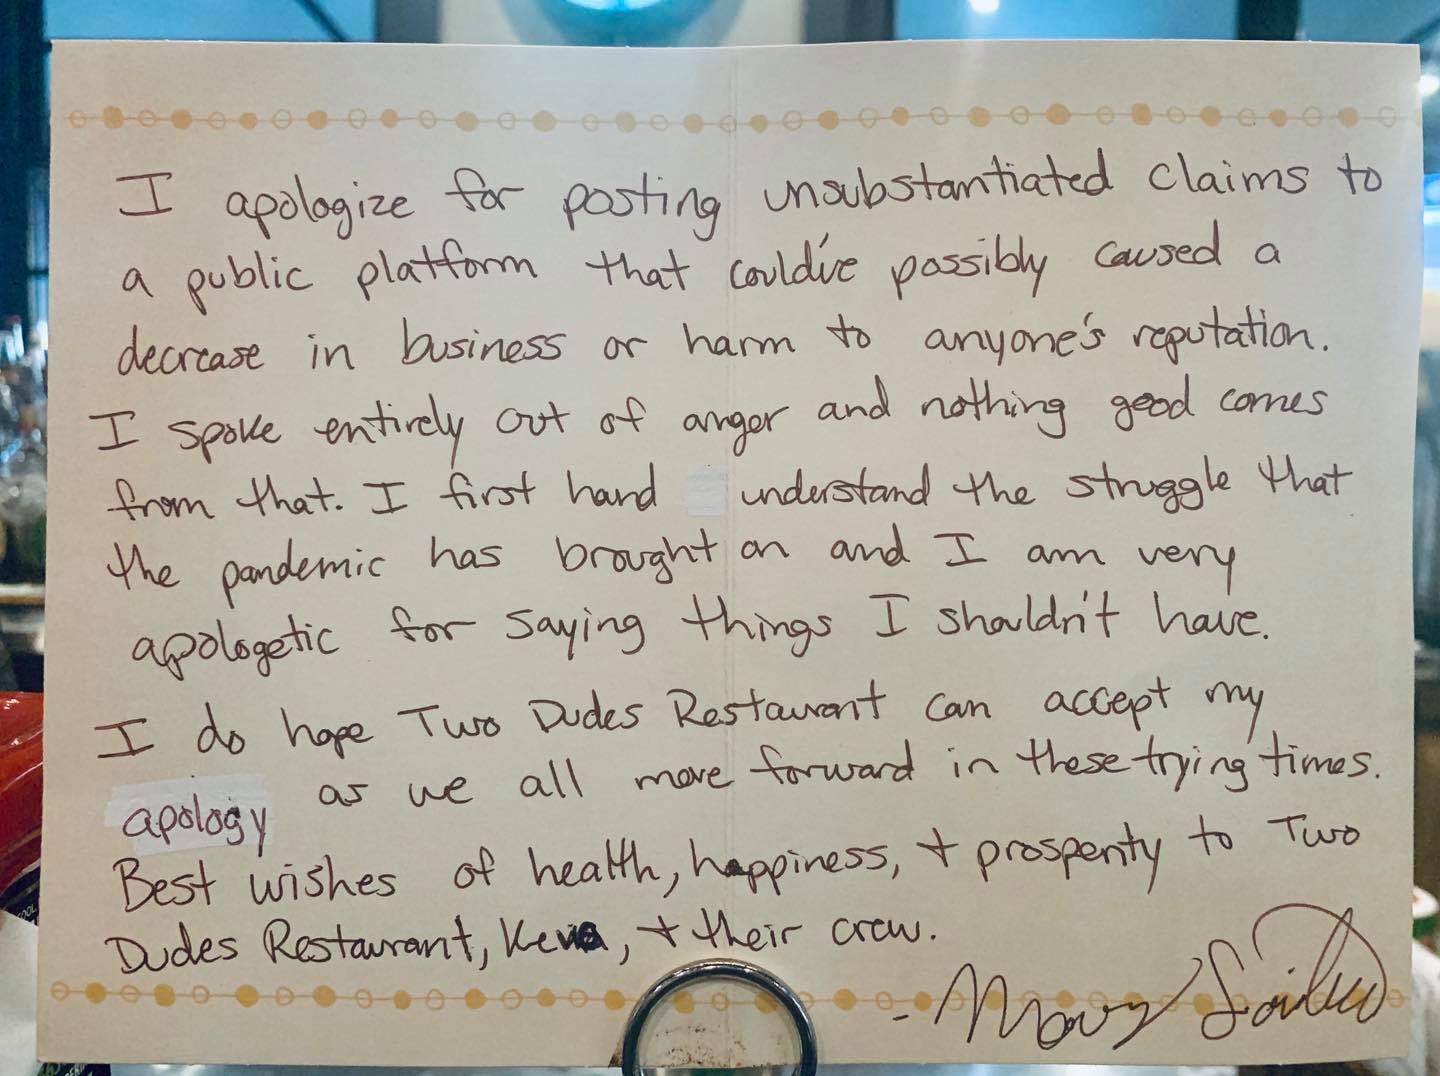 I apologize for posting unsubstantiated claims to
a public platform that could've possibly caused a
decrease in business or harm to anyone's reputation.
I spoke entirely out of anger and nothing good comes
from that. I first hand understand the struggle that
the pandemic has brought on and I am very
apologetic for saying things I shouldn't have.
I do hope Two Dudes Restaurant can accept my
apology as we all move forward in these trying times.
Best wishes of health, happiness, + prosperity to Two
Dudes Restaurant, + their crew.